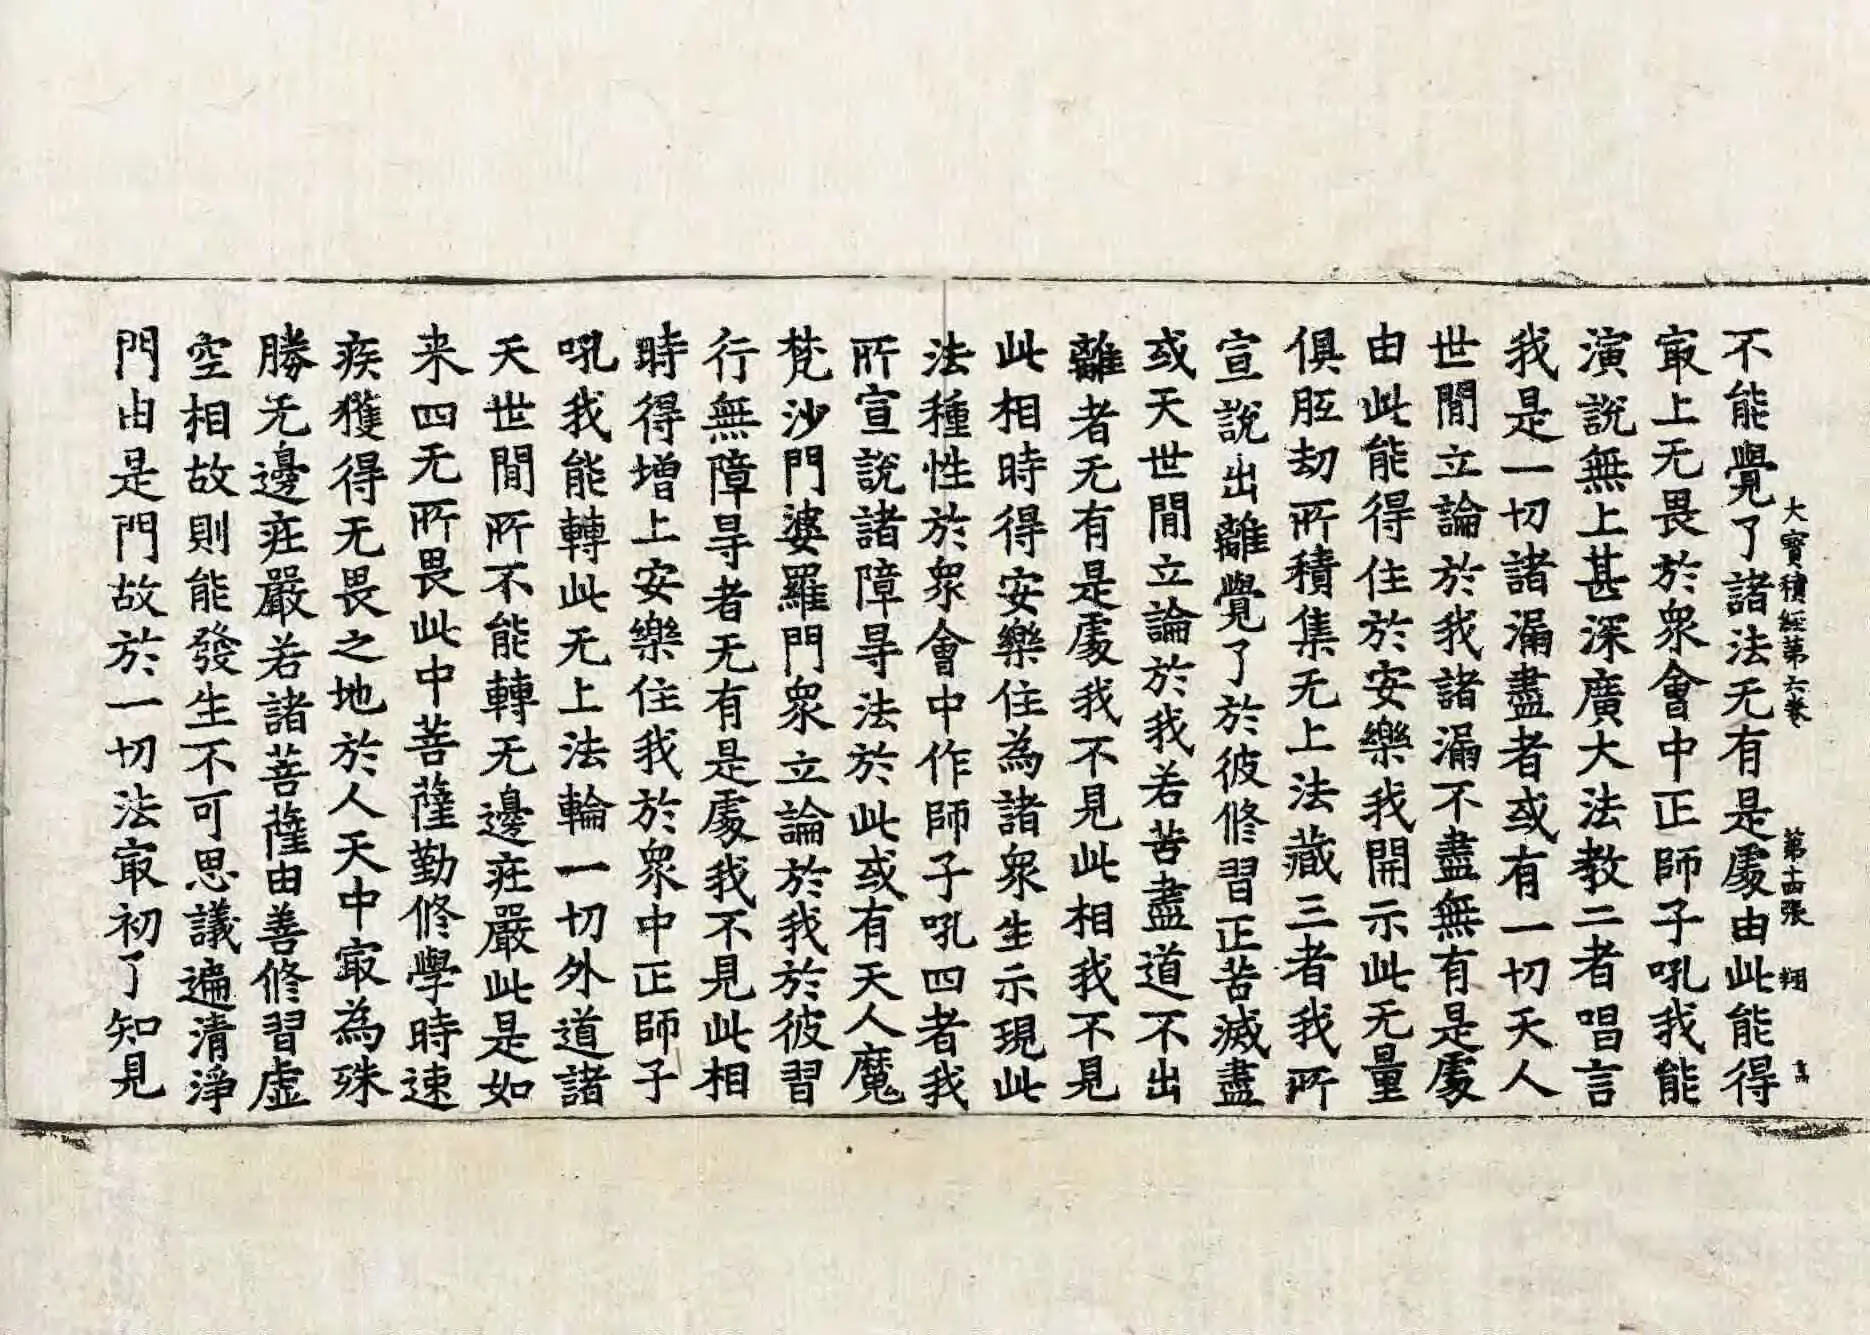 大寶積經第六卷 第十四張 翔
不能覺了諸法无有是處由此能得
寂上无畏於衆會中正師子吼我能
演說無上甚深廣大法教二者唱言
我是一切諸漏盡者或有一切天人
世間立論於我諸漏不盡無有是處
由此能得住於安樂我開示此无量
俱胝劫所積集无上法藏三者我所
宣說出離覺了於彼修習正苦滅盡
或天世間立論於我若苦盡道不出
離者无有是處我不見此相我不見
此相時得安樂住為諸衆生示現此
法種性於衆會中作師子吼四者我
所宣說諸障㝵法於此或有天人魔
梵沙門婆羅門衆立論於我於彼習
行無障㝵者无有是處我不見此相
時得增上安樂住我於衆中正師子
吼我能轉此无上法輪一切外道諸
天世間所不能轉无邊莊嚴此是如
来四无所畏此中菩薩勤修學時速
疾獲得无畏之地於人天中㝡為殊
勝无邊莊嚴若諸菩薩由善修習虛
空相故則能發生不可思議遍清淨
門由是門故於一切法㝡初了知見